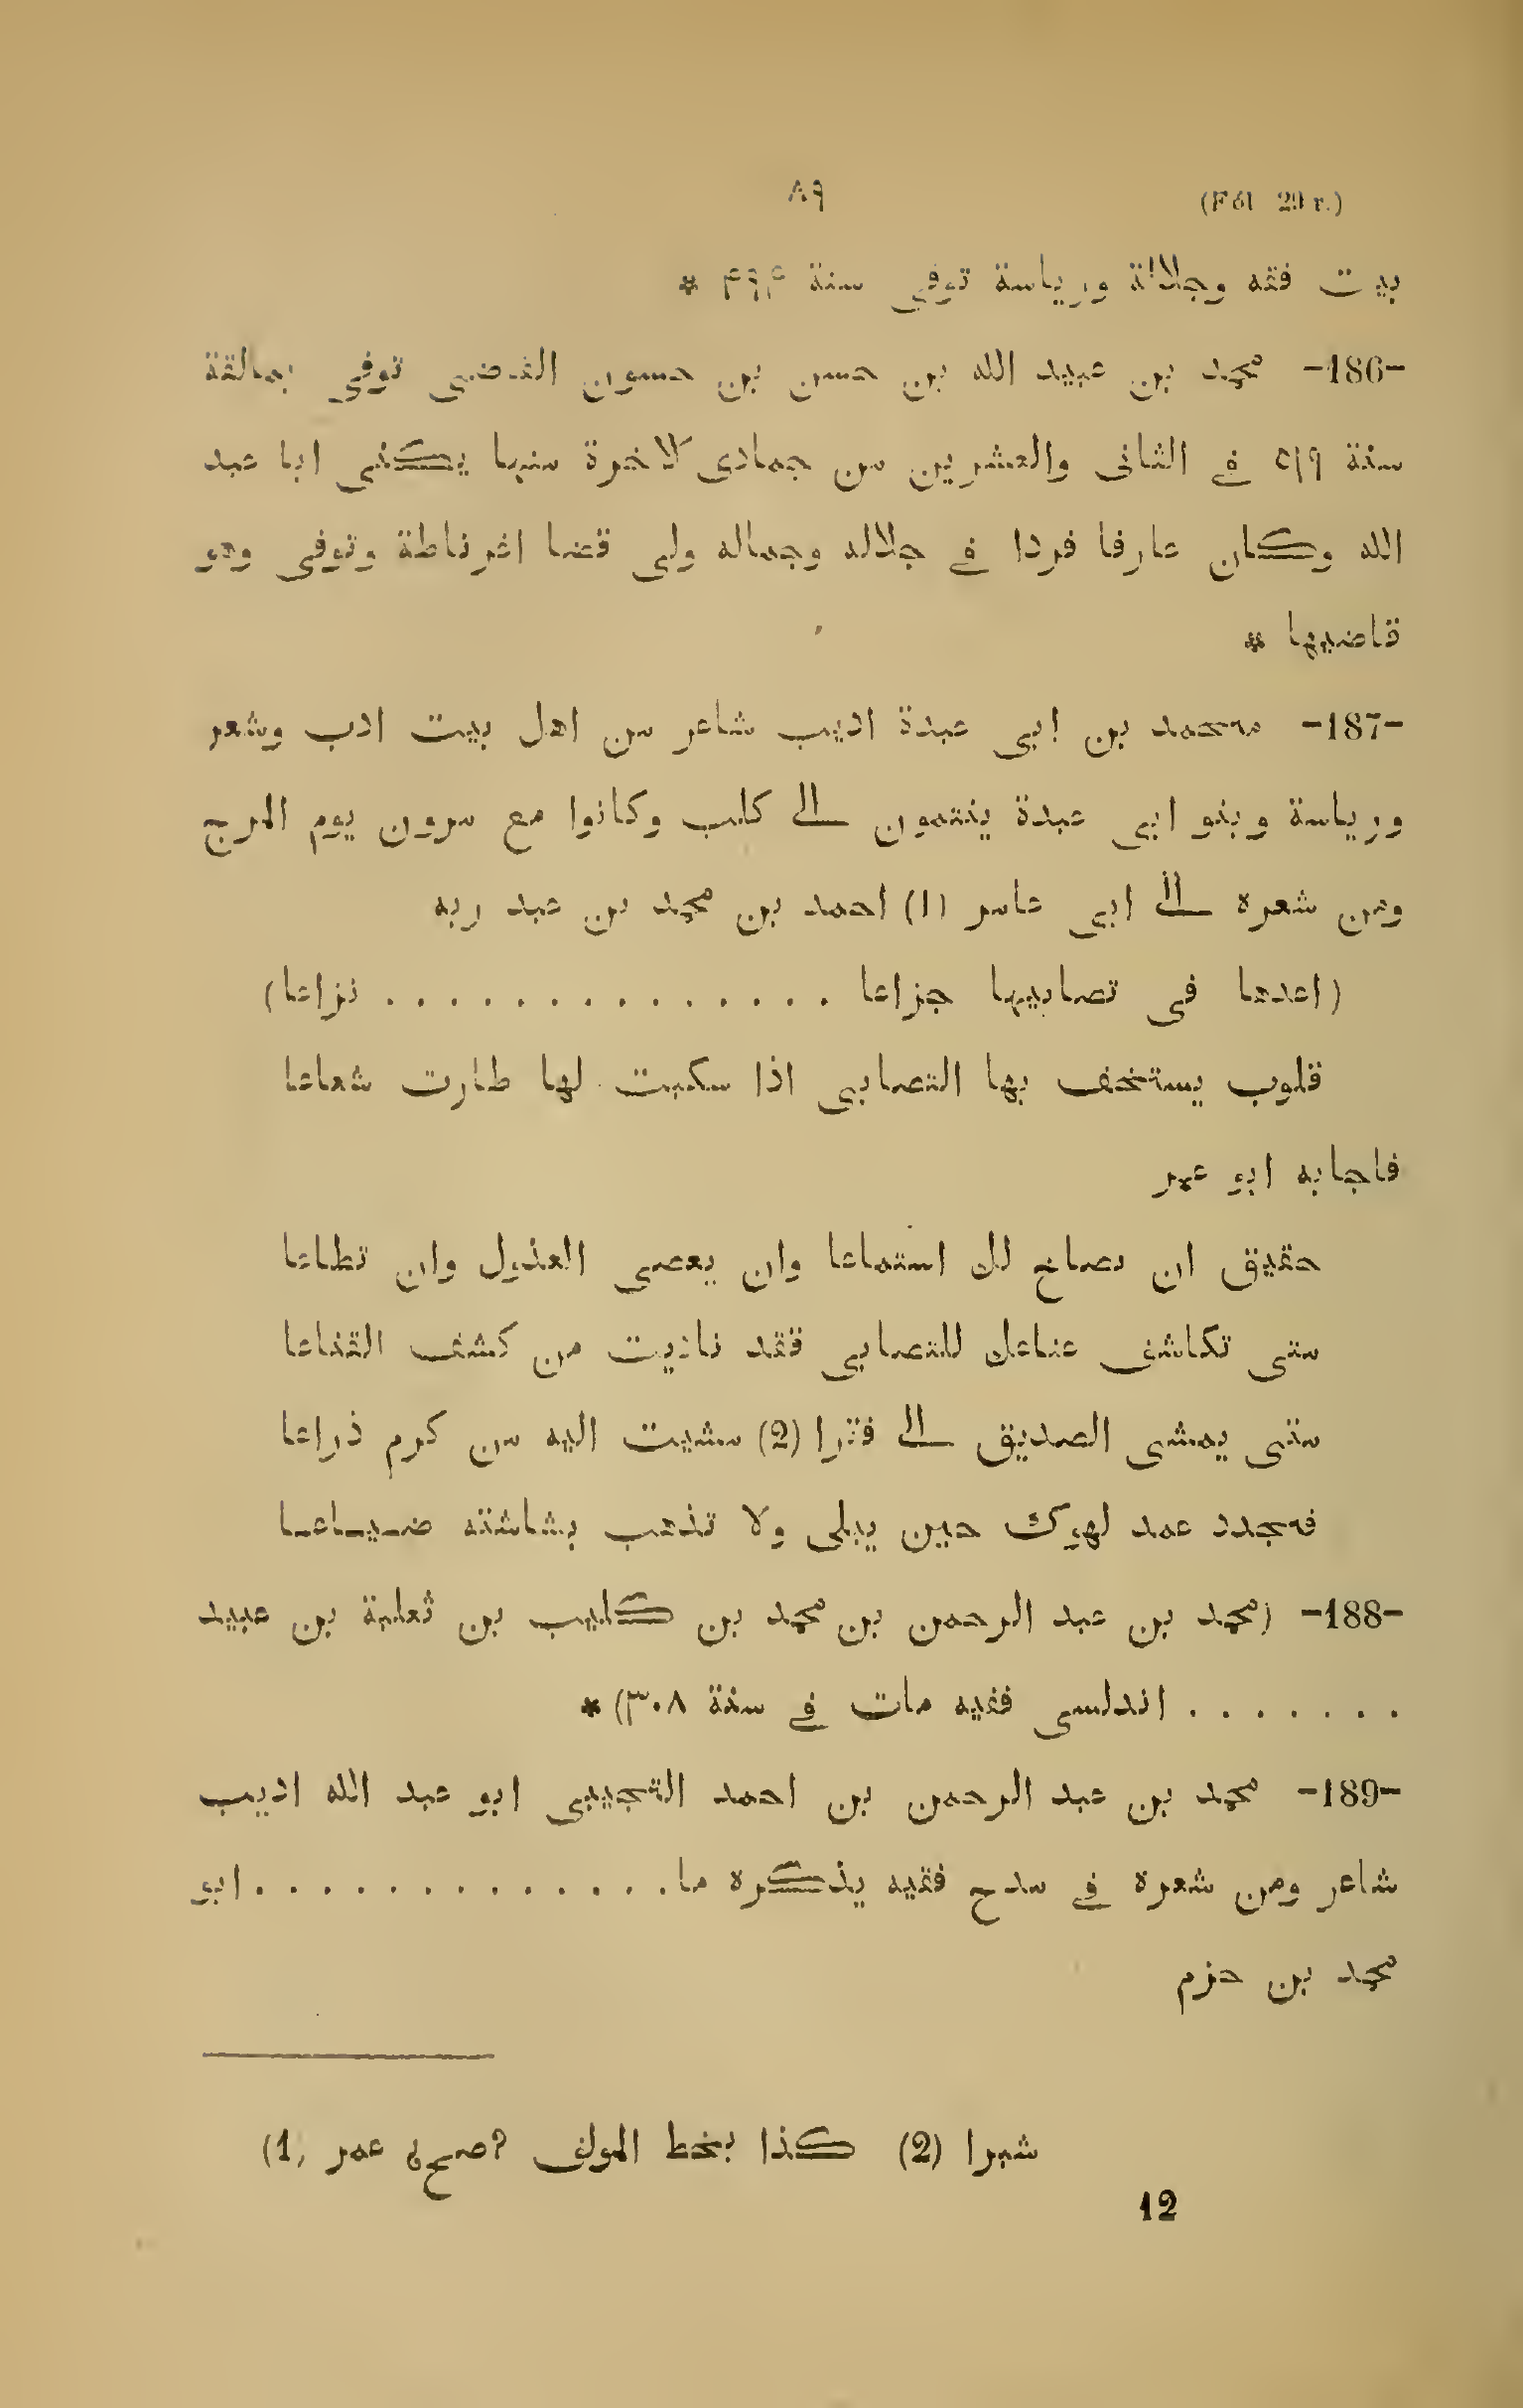 (Fól 29 r.) ٨٩
بيت فقه وجلالة ورياسة توفى سنة ۴٩۴ *
-186- محمد بن عبيد الله بن حسن بن حسون القاضى توفى بمالقة
سنة ٥١٩ في الثانى والعشرين من جمادى الاخرة منها يكنى ابا عبد
الله وكان عارفا فردا في جلاله وجماله ولى قضا اغرناطة وتوفى وهو
قاضيها *
-187- محمد بن ابى عبدة اديب شاعر من اهل بيت ادب وشعر
ورياسة وبنو ابى عبدة ينتمون الى كلب وكانوا مع مرون يوم المرج
ومن شعره الى ابى عامر (1) احمد بن محمد بن عبد ربه
(اعدها فى تصابيها جزاعا . . . . . . . . . . . . . . . نزاعا)
قلوب يستخف بها التصابى اذا سكبت لها طارت شعاعا
فاجابه ابو عمر
حقيق ان يصاخ لك استماعا وان يعصى العذول وان تطاعا
متى تكاشف عناعك للتصابى فقد ناديت من كشف القناعا
متى يمشى الصديق الى فترا (2) مشيت اليه من كرم ذراعا
فجدد عهد لهوك حين يبلى ولا تذهب بشاشته ضياعا
-188- (محمد بن عبد الرحمن بن محمد بن كليب بن ثعلبة بن عبيد
. . . . . . . اندلسى فقيه مات في سنة ٣٠٨) *
-189- محمد بن عبد الرحمن بن احمد التجيبى ابو عبد الله اديب
شاعر ومن شعره في مدح فقيه يذكره ما . . . . . . . . . . . . . ابو
محمد بن حزم
(1) عمر صح؟ كذا بخط المولف (2) شبرا
12